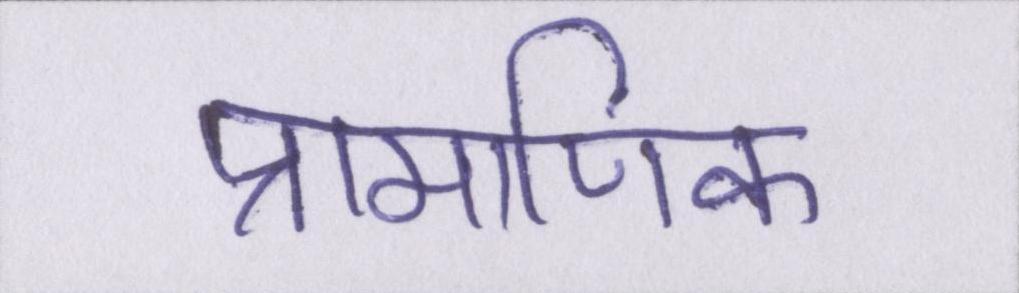 प्रामाणिक